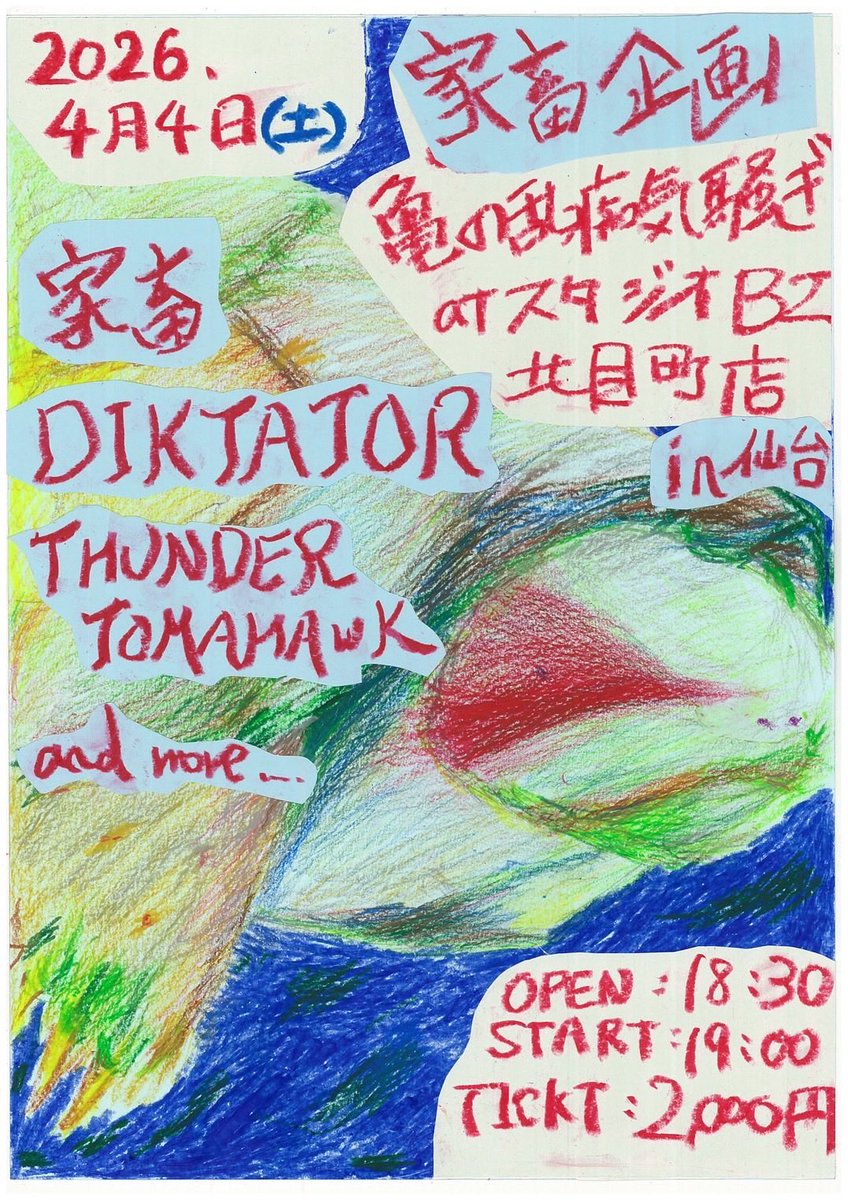 2026.
4月4日(土)
家畜企画
亀の乱痴気騒ぎ
atスタジオBZ
北目町店
in仙台
家畜
DIKTATOR
THUNDER
TOMAHAWK
and more....
OPEN:18:30
START:19:00
TICKT:2,000円